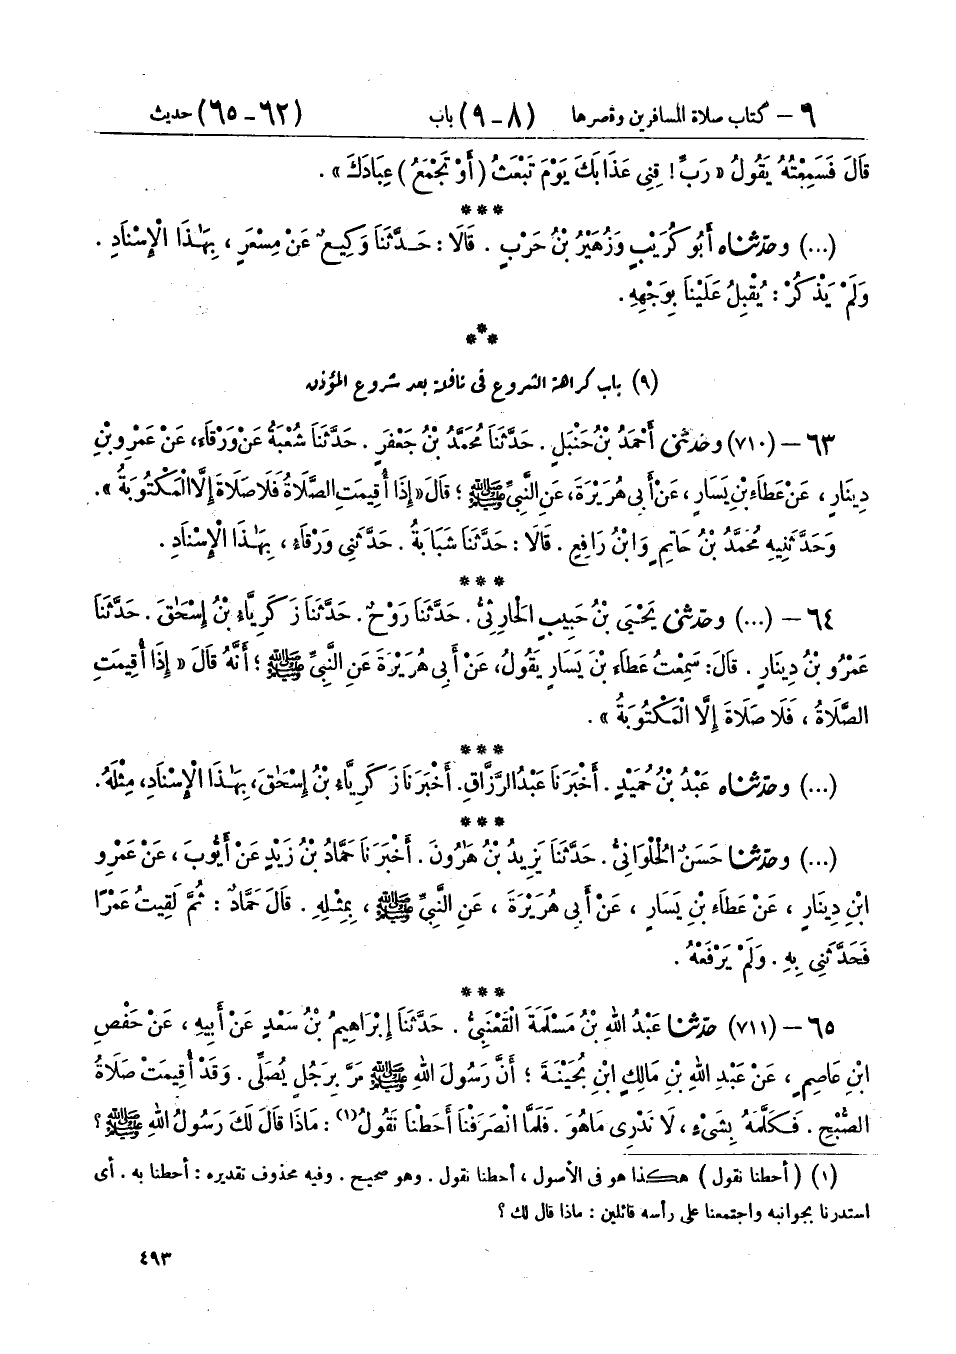 ٦ – كتاب صلاة المسافرين وقصرها (٨ – ٩) باب (٦٢ – ٦٥) حديث
قَالَ فَسَمِعْتُهُ يَقُولُ « رَبِّ ! قِنِي عَذَابَكَ يَوْمَ تَبْعَثُ ( أَوْ تَجْمَعُ ) عِبَادَكَ » .
***
(...) وحدّثناه أَبُو كُرَيْبٍ وَزُهَيْرُ بْنُ حَرْبٍ . قَالَا : حَدَّثَنَا وَكِيعٌ عَنْ مِسْعَرٍ ، بِهَٰذَا الْإِسْنَادِ .
وَلَمْ يَذْكُرْ : يُقْبِلُ عَلَيْنَا بِوَجْهِهِ .
***
(٩) باب كراهة الشروع فى نافلة بعد شروع المؤذن
٦٣ – (٧١٠) وحدّثنى أَحْمَدُ بْنُ حَنْبَلٍ . حَدَّثَنَا مُحَمَّدُ بْنُ جَعْفَرٍ . حَدَّثَنَا شُعْبَةُ عَنْ وَرْقَاءَ، عَنْ عَمْرِو بْنِ
دِينَارٍ ، عَنْ عَطَاءِ بْنِ يَسَارٍ ، عَنْ أَبِى هُرَيْرَةَ، عَنِ النَّبِىِّ ﷺ ؛ قَالَ « إِذَا أُقِيمَتِ الصَّلَاةُ فَلَا صَلَاةَ إِلَّا الْمَكْتُوبَةُ » .
وَحَدَّثَنِيهِ مُحَمَّدُ بْنُ حَاتِمٍ وَابْنُ رَافِعٍ . قَالَا : حَدَّثَنَا شَبَابَةُ . حَدَّثَنِى وَرْقَاءُ ، بِهَٰذَا الْإِسْنَادِ .
***
٦٤ – (...) وحدّثنى يَحْيَى بْنُ حَبِيبٍ الْحَارِثِىُّ . حَدَّثَنَا رَوْحٌ . حَدَّثَنَا زَكَرِيَّاءُ بْنُ إِسْحَٰقَ . حَدَّثَنَا
عَمْرُو بْنُ دِينَارٍ . قَالَ: سَمِعْتُ عَطَاءَ بْنَ يَسَارٍ يَقُولُ، عَنْ أَبِى هُرَيْرَةَ عَنِ النَّبِىِّ ﷺ ؛ أَنَّهُ قَالَ « إِذَا أُقِيمَتِ
الصَّلَاةُ ، فَلَا صَلَاةَ إِلَّا الْمَكْتُوبَةُ » .
***
(...) وحدّثناه عَبْدُ بْنُ حُمَيْدٍ . أَخْبَرَنَا عَبْدُ الرَّزَّاقِ. أَخْبَرَنَا زَكَرِيَّاءُ بْنُ إِسْحَٰقَ، بِهَٰذَا الْإِسْنَادِ، مِثْلَهُ.
***
(...) وحدّثنا حَسَنٌ الْحُلْوَانِىُّ . حَدَّثَنَا يَزِيدُ بْنُ هَارُونَ . أَخْبَرَنَا حَمَّادُ بْنُ زَيْدٍ عَنْ أَيُّوبَ ، عَنْ عَمْرِو
ابْنِ دِينَارٍ ، عَنْ عَطَاءِ بْنِ يَسَارٍ ، عَنْ أَبِى هُرَيْرَةَ ، عَنِ النَّبِىِّ ﷺ ، بِمِثْلِهِ . قَالَ حَمَّادٌ : ثُمَّ لَقِيتُ عَمْرًا
فَحَدَّثَنِى بِهِ . وَلَمْ يَرْفَعْهُ .
***
٦٥ – (٧١١) حدّثنا عَبْدُ اللهِ بْنُ مَسْلَمَةَ الْقَعْنَبِىُّ . حَدَّثَنَا إِبْرَاهِيمُ بْنُ سَعْدٍ عَنْ أَبِيهِ ، عَنْ حَفْصِ
ابْنِ عَاصِمٍ ، عَنْ عَبْدِ اللهِ بْنِ مَالِكٍ ابْنِ بُحَيْنَةَ ؛ أَنَّ رَسُولَ اللهِ ﷺ مَرَّ بِرَجُلٍ يُصَلِّى . وَقَدْ أُقِيمَتْ صَلَاةُ
الصُّبْحِ . فَكَلَّمَهُ بِشَىْءٍ ، لَا نَدْرِى مَا هُوَ . فَلَمَّا انْصَرَفْنَا أَحَطْنَا نَقُولُ(١) : مَاذَا قَالَ لَكَ رَسُولُ اللهِ ﷺ ؟
(١) ( أحطنا نقول ) هكذا هو فى الأصول ، أحطنا نقول . وهو صحيح . وفيه محذوف تقديره : أحطنا به . أى
استدرنا بجوانبه واجتمعنا على رأسه قائلين : ماذا قال لك ؟
٤٩٣